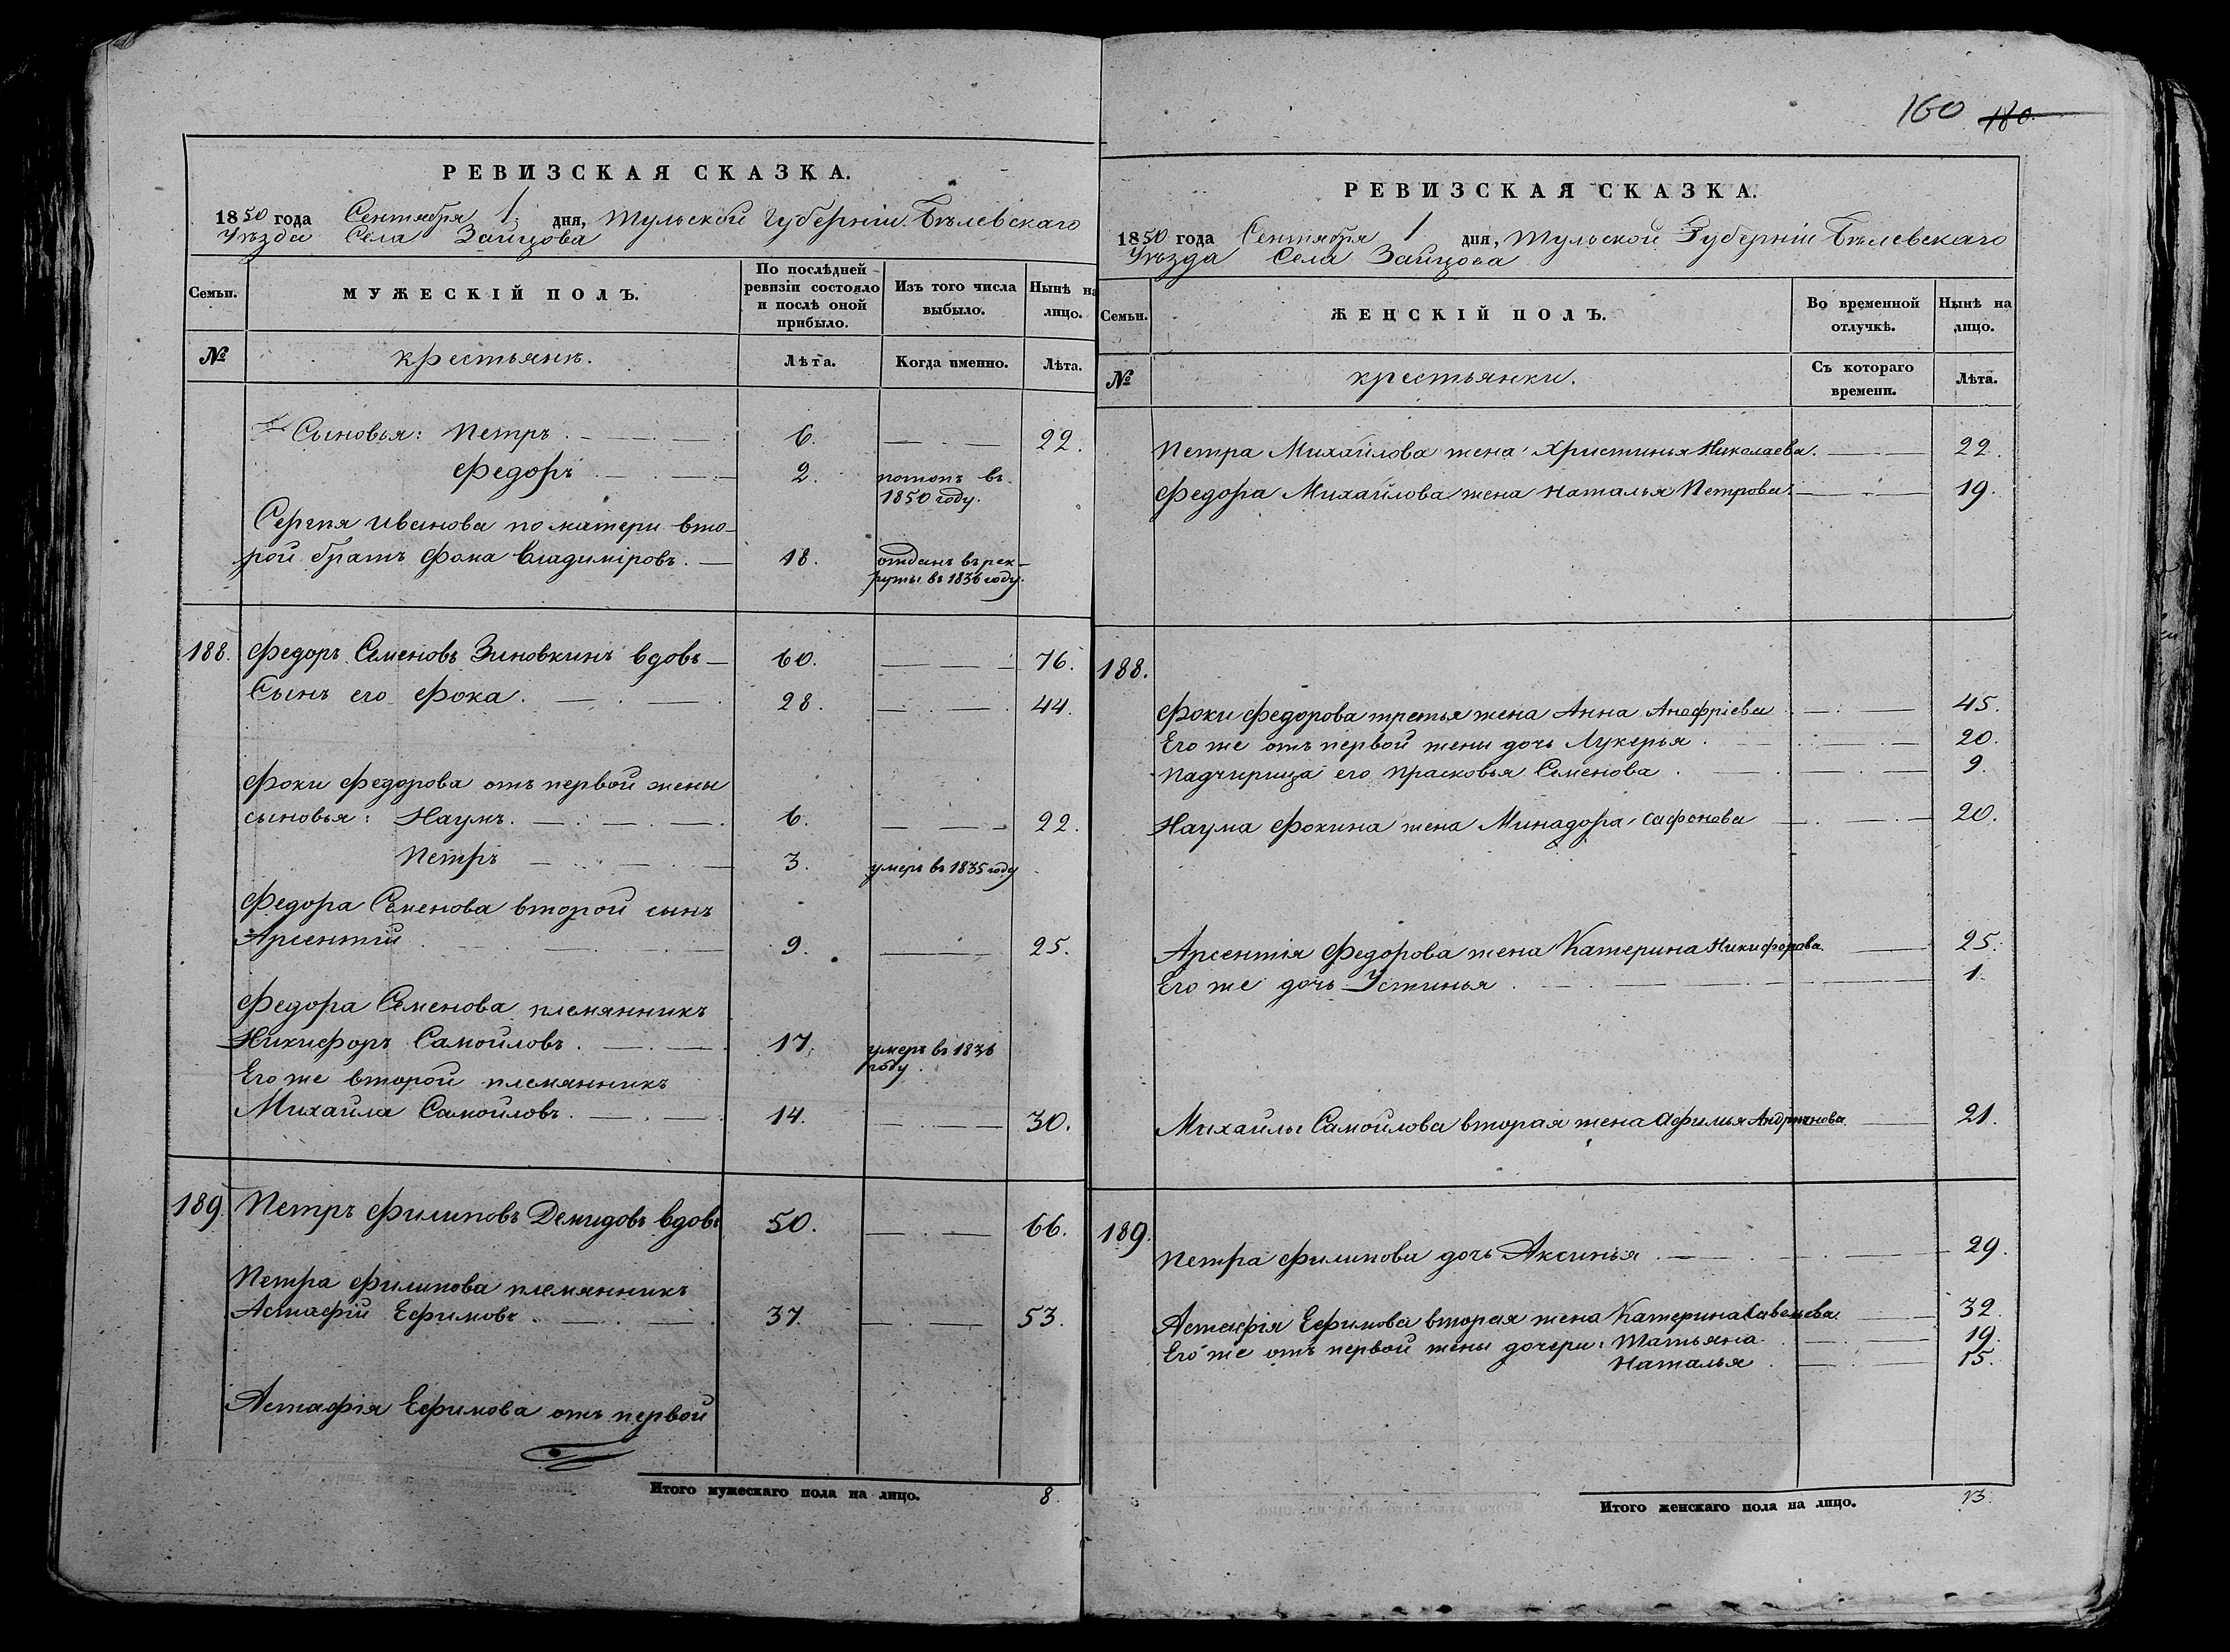 РЕВИЗСКАЯ СКАЗКА.
1850 года Сентября 1 дня, Тульской Губерніи Бѣлевскаго
Уѣзда Села Зайцова
Семьи.
МУЖЕСКІЙ ПОЛЪ.
По послѣдней
ревизіи состояло
и послѣ оной
прибыло.
Изъ того числа
выбыло.
Нынѣ на
лицо.
№
крестьянъ.
Лѣта.
Когда именно.
Лѣта.
Сыновья: Петръ. 6. 22.
Федоръ 2. потопъ въ
1850 году.
Сергѣя Иванова по матери вто-
рой братъ Фока Владиміровъ. 18. отданъ въ рек-
руты въ 1836 году.
188. Федоръ Семеновъ Зиновкинъ вдовъ 60. 76.
Сынъ его Фока. 28. 44.
Фоки Федорова отъ первой жены
сыновья: Наумъ. 6. 22.
Петръ 3. умеръ въ 1835 году
Федора Семенова второй сынъ
Арсентій 9. 25.
Федора Семенова племянникъ
Никифоръ Самойловъ. 17. умеръ въ 1836
году.
Его же второй племянникъ
Михайла Самойловъ. 14. 30.
189. Петръ Филиповъ Демидовъ вдовъ 50. 66.
Петра Филипова племянникъ
Астафій Ефимовъ. 37. 53.
Астафія Ефимова отъ первой
Итого мужескаго пола на лицо. 8.
160 180.
РЕВИЗСКАЯ СКАЗКА.
1850 года Сентября 1 дня, Тульской Губерніи Бѣлевскаго
Уѣзда Села Зайцова
Семьи.
ЖЕНСКІЙ ПОЛЪ.
Во временной
отлучкѣ.
Нынѣ на
лицо.
№
крестьянки.
Съ котораго
времени.
Лѣта.
Петра Михайлова жена Христинья Николаева. 22.
Федора Михайлова жена Наталья Петрова. 19.
188.
Фоки Федорова третья жена Анна Анофріева 45.
Его же отъ первой жены дочь Лукерья. 20.
Падчирица его Прасковья Семенова. 9.
Наума Фокина жена Минадора Сафонова 20.
Арсентія Федорова жена Катерина Никифорова. 25.
Его же дочь Устинья 1.
Михайлы Самойлова вторая жена Афимья Андріянова 21.
189.
Петра Филипова дочь Аксинья. 29.
Астафія Ефимова вторая жена Катерина Савельева 32.
Его же отъ первой жены дочери: Татьяна 19.
Наталья. 15.
Итого женскаго пола на лицо. 13.